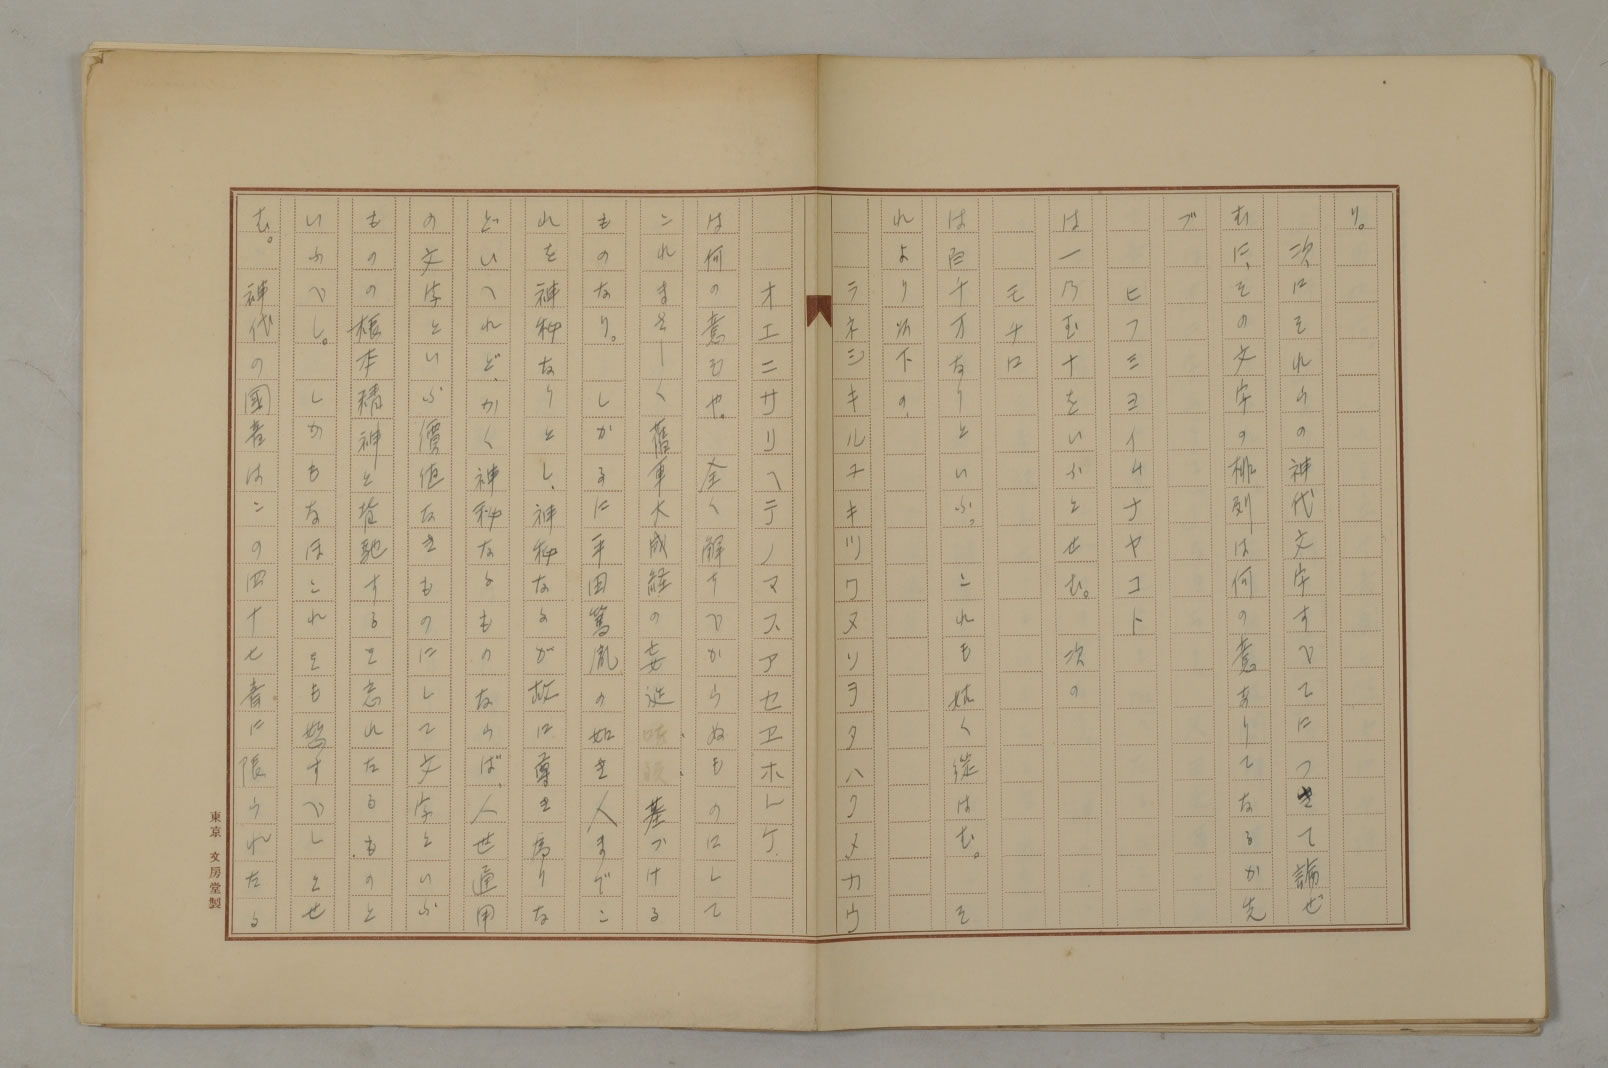 り。
次にそれらの神代文字すべてにつきて論ぜ
むに、その文字の排列は何の意ありてなるか先
づ
ヒフミヨイムナヤコト
は一乃至十をいふとせむ。次の
モチロ
は百千万なりといふ。これも姑く従はむ。そ
れより以下の、
ラネシキルユヰツワヌソヲタハクメカウ
オエニサリヘテノマスアセヱホレケ
は何の意もや。全く解すべからぬものにして
これまさしく舊事大成経の妄説に基づける
ものなり。しかるに平田篤胤の如き人までこ
れを神秘なりとし、神秘なるが故に尊き為りな
どいへれど、かく神秘なるものならば、人世通用
の文字といふ價値なきものにして文字といふ
ものの根本精神と背馳するを忘れたるものと
いふべし。しかもなほこれをも恕すべしとせ
む。神代の國音はこの四十七音に限られたる
東京 文房堂製